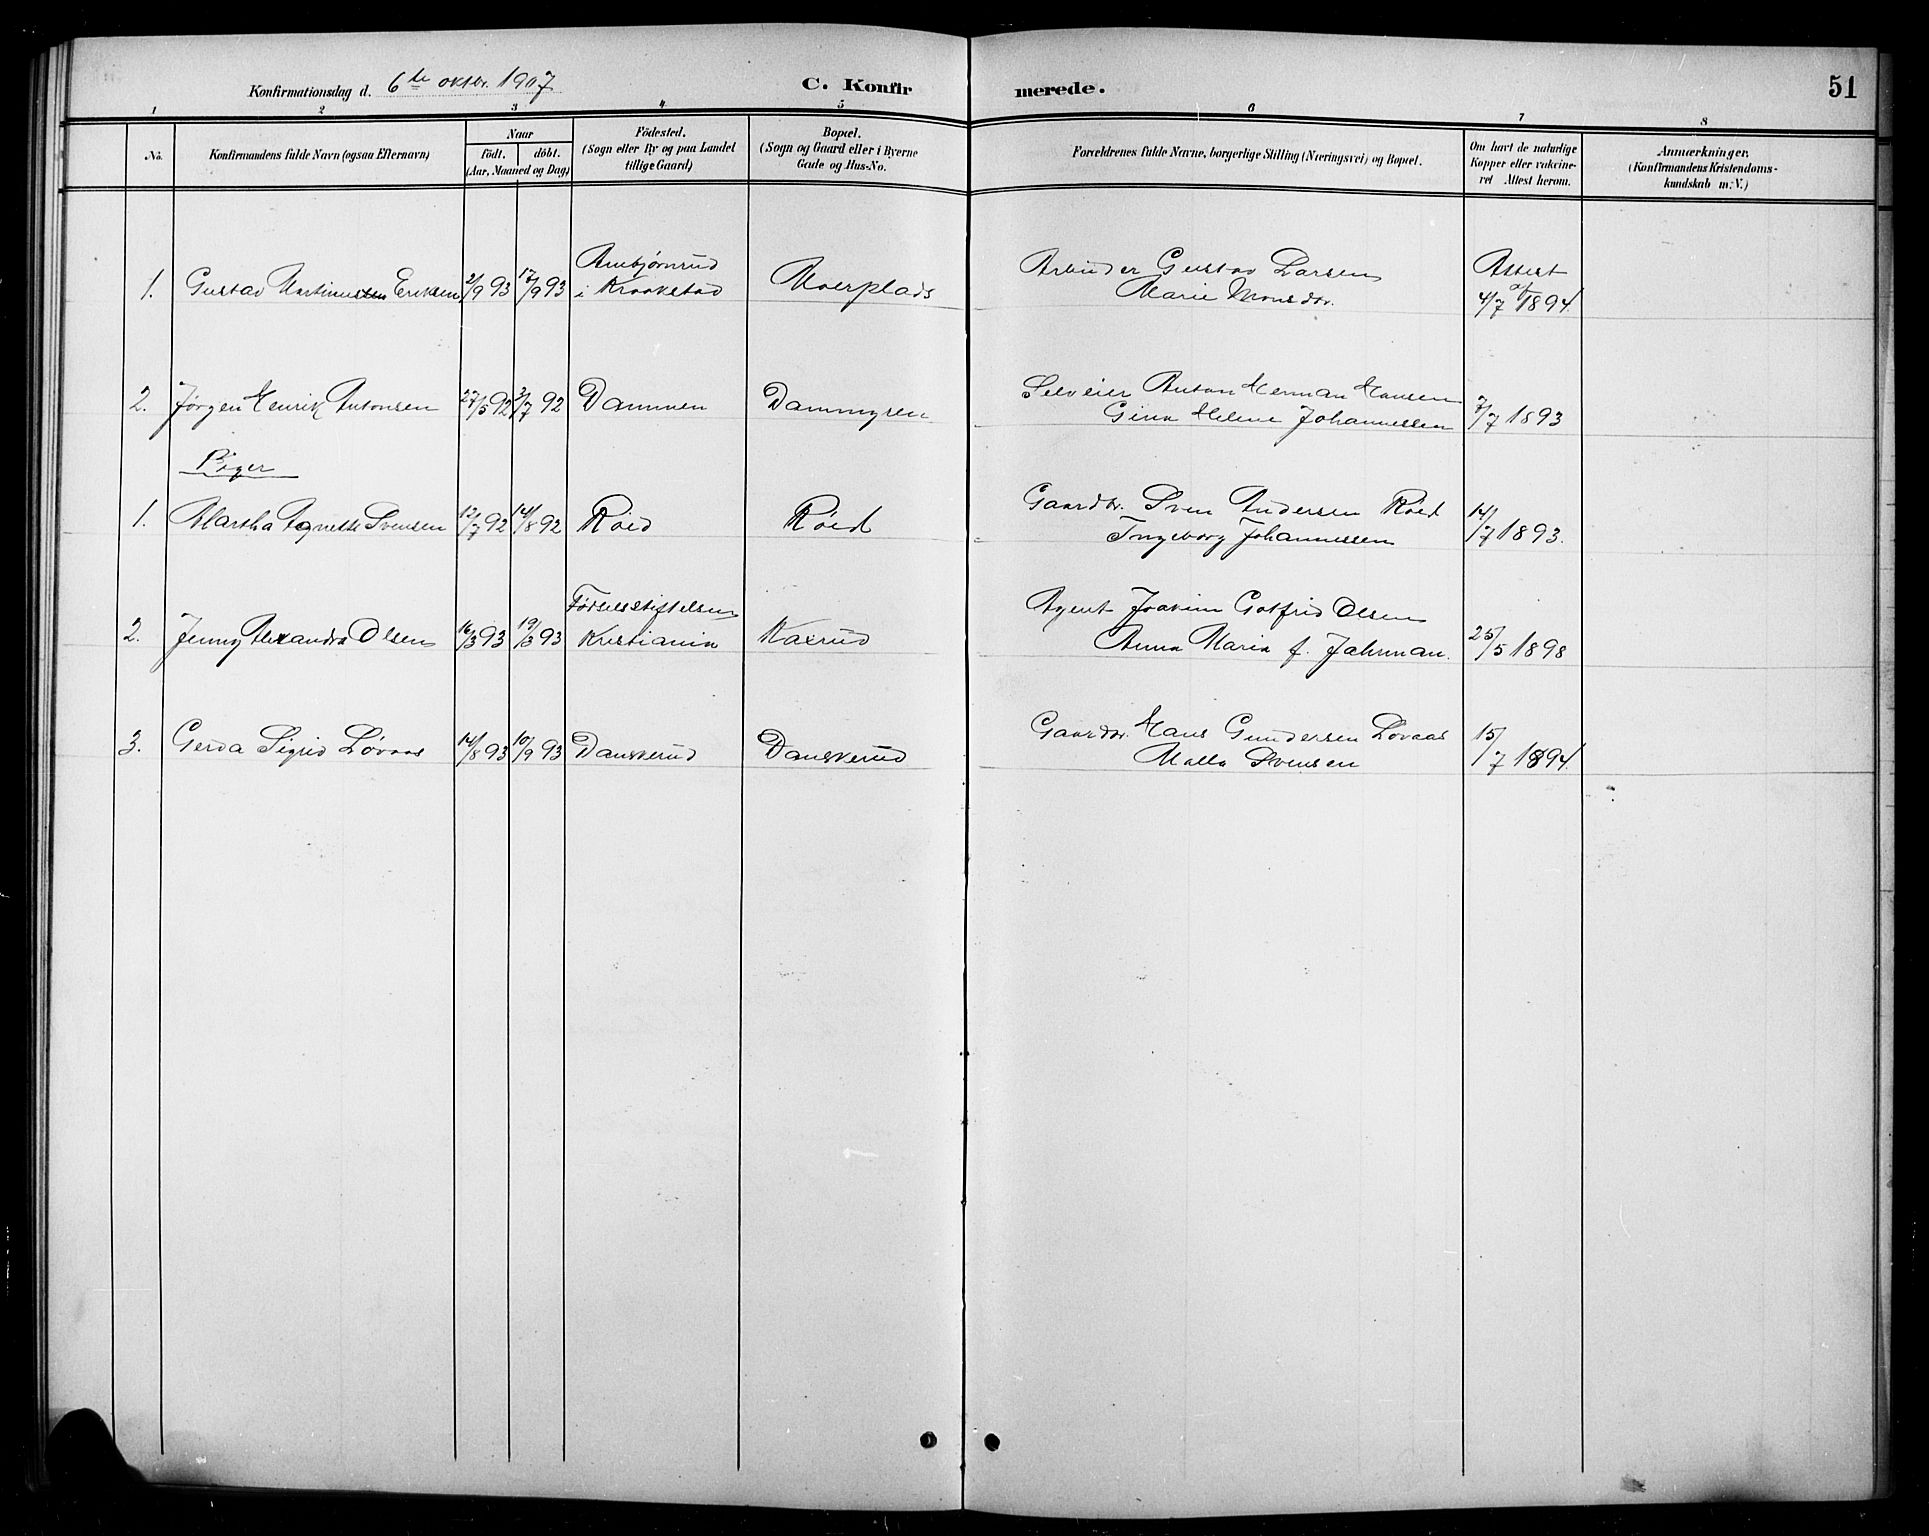 Konfirmationsdag d. 6te oktbr. 1907
C. Konfirmerede.
51
1 2 3 4 5 6 7 8
No.
Konfirmandens fulde Navn (ogsaa Efternavn)
Naar
födt. döbt.
(Aar, Maaned og Dag)
Födested.
(Sogn eller By og paa Landet
tillige Gaard)
Bopæl.
(Sogn og Gaard eller i Byerne
Gade og Hus-No.
Forældrenes fulde Navne, borgerlige Stilling (Næringsvei) og Bopæl.
Om havt de naturlige
Kopper eller vakcine-
ret Attest herom.
Anmærkninger.
(Konfirmandens Kristendoms-
kundskab m. V.)
1. Gustav Martinus Eriksen 2/9 93 17/9 93
Ambjørnrud
i Kraakstad
Moerplads
Arbeider Gustav Larsen
Marie Monsdtr.
Attest
af
4/7 1894.
2. Jørgen Henrik Antonsen 27/5 92 3/7 92 Dammen Dammyren
Selveier Anton Herman Hansen
Gina Helene Johannessen
7/7 1893
Piger
1. Martha Agnethe Svensen 12/7 92 14/8 92 Röed Röed
Gaardbr. Sven Andersen Röed
Ingeborg Johannessen
14/7 1893.
2. Jenny Alexandra Olsen 16/3 93 19/3 93
Fødselsstiftelsen
Kristiania
Kaxrud
Agent Joakim Gotfrid Olsen
Anna Maria f. Jahrman.
25/5 1898
3. Gerda Sigrid Løvaas 14/8 93 10/9 93 Danskerud Danskerud
Gaardbr. Hans Gundersen Løvaas
Malla Svensen
15/7 1894.